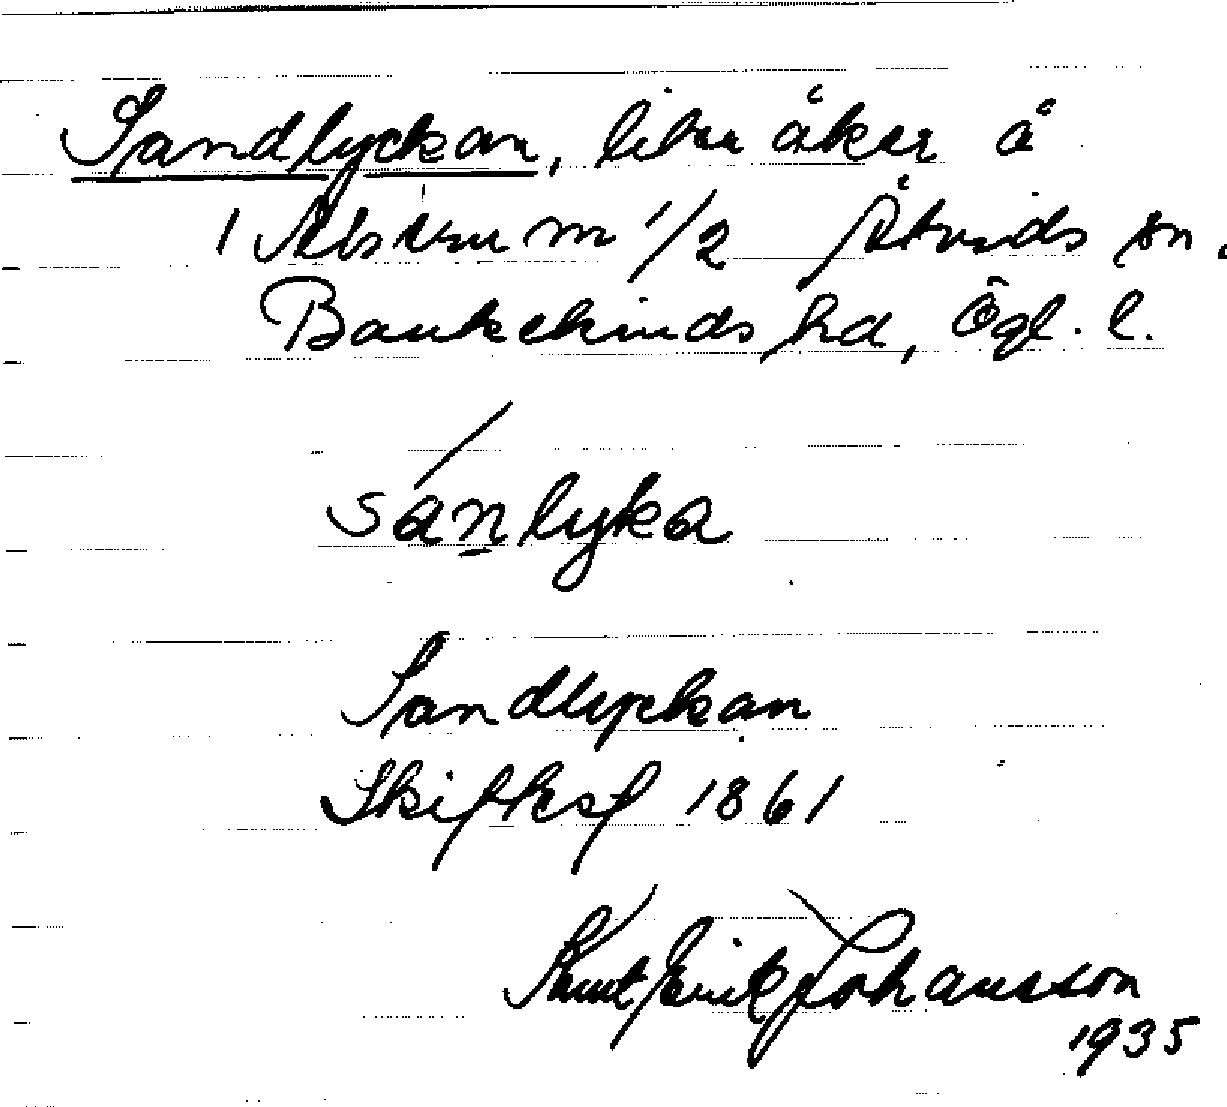 Sandlyckan, liten åker å
1 m 1/2 Åtvids sn.
Bankekinds hd, Ögl. l.
sánlyka
Sandlyckan
Skifteskf 1861
Knut Erik Johansson
1935